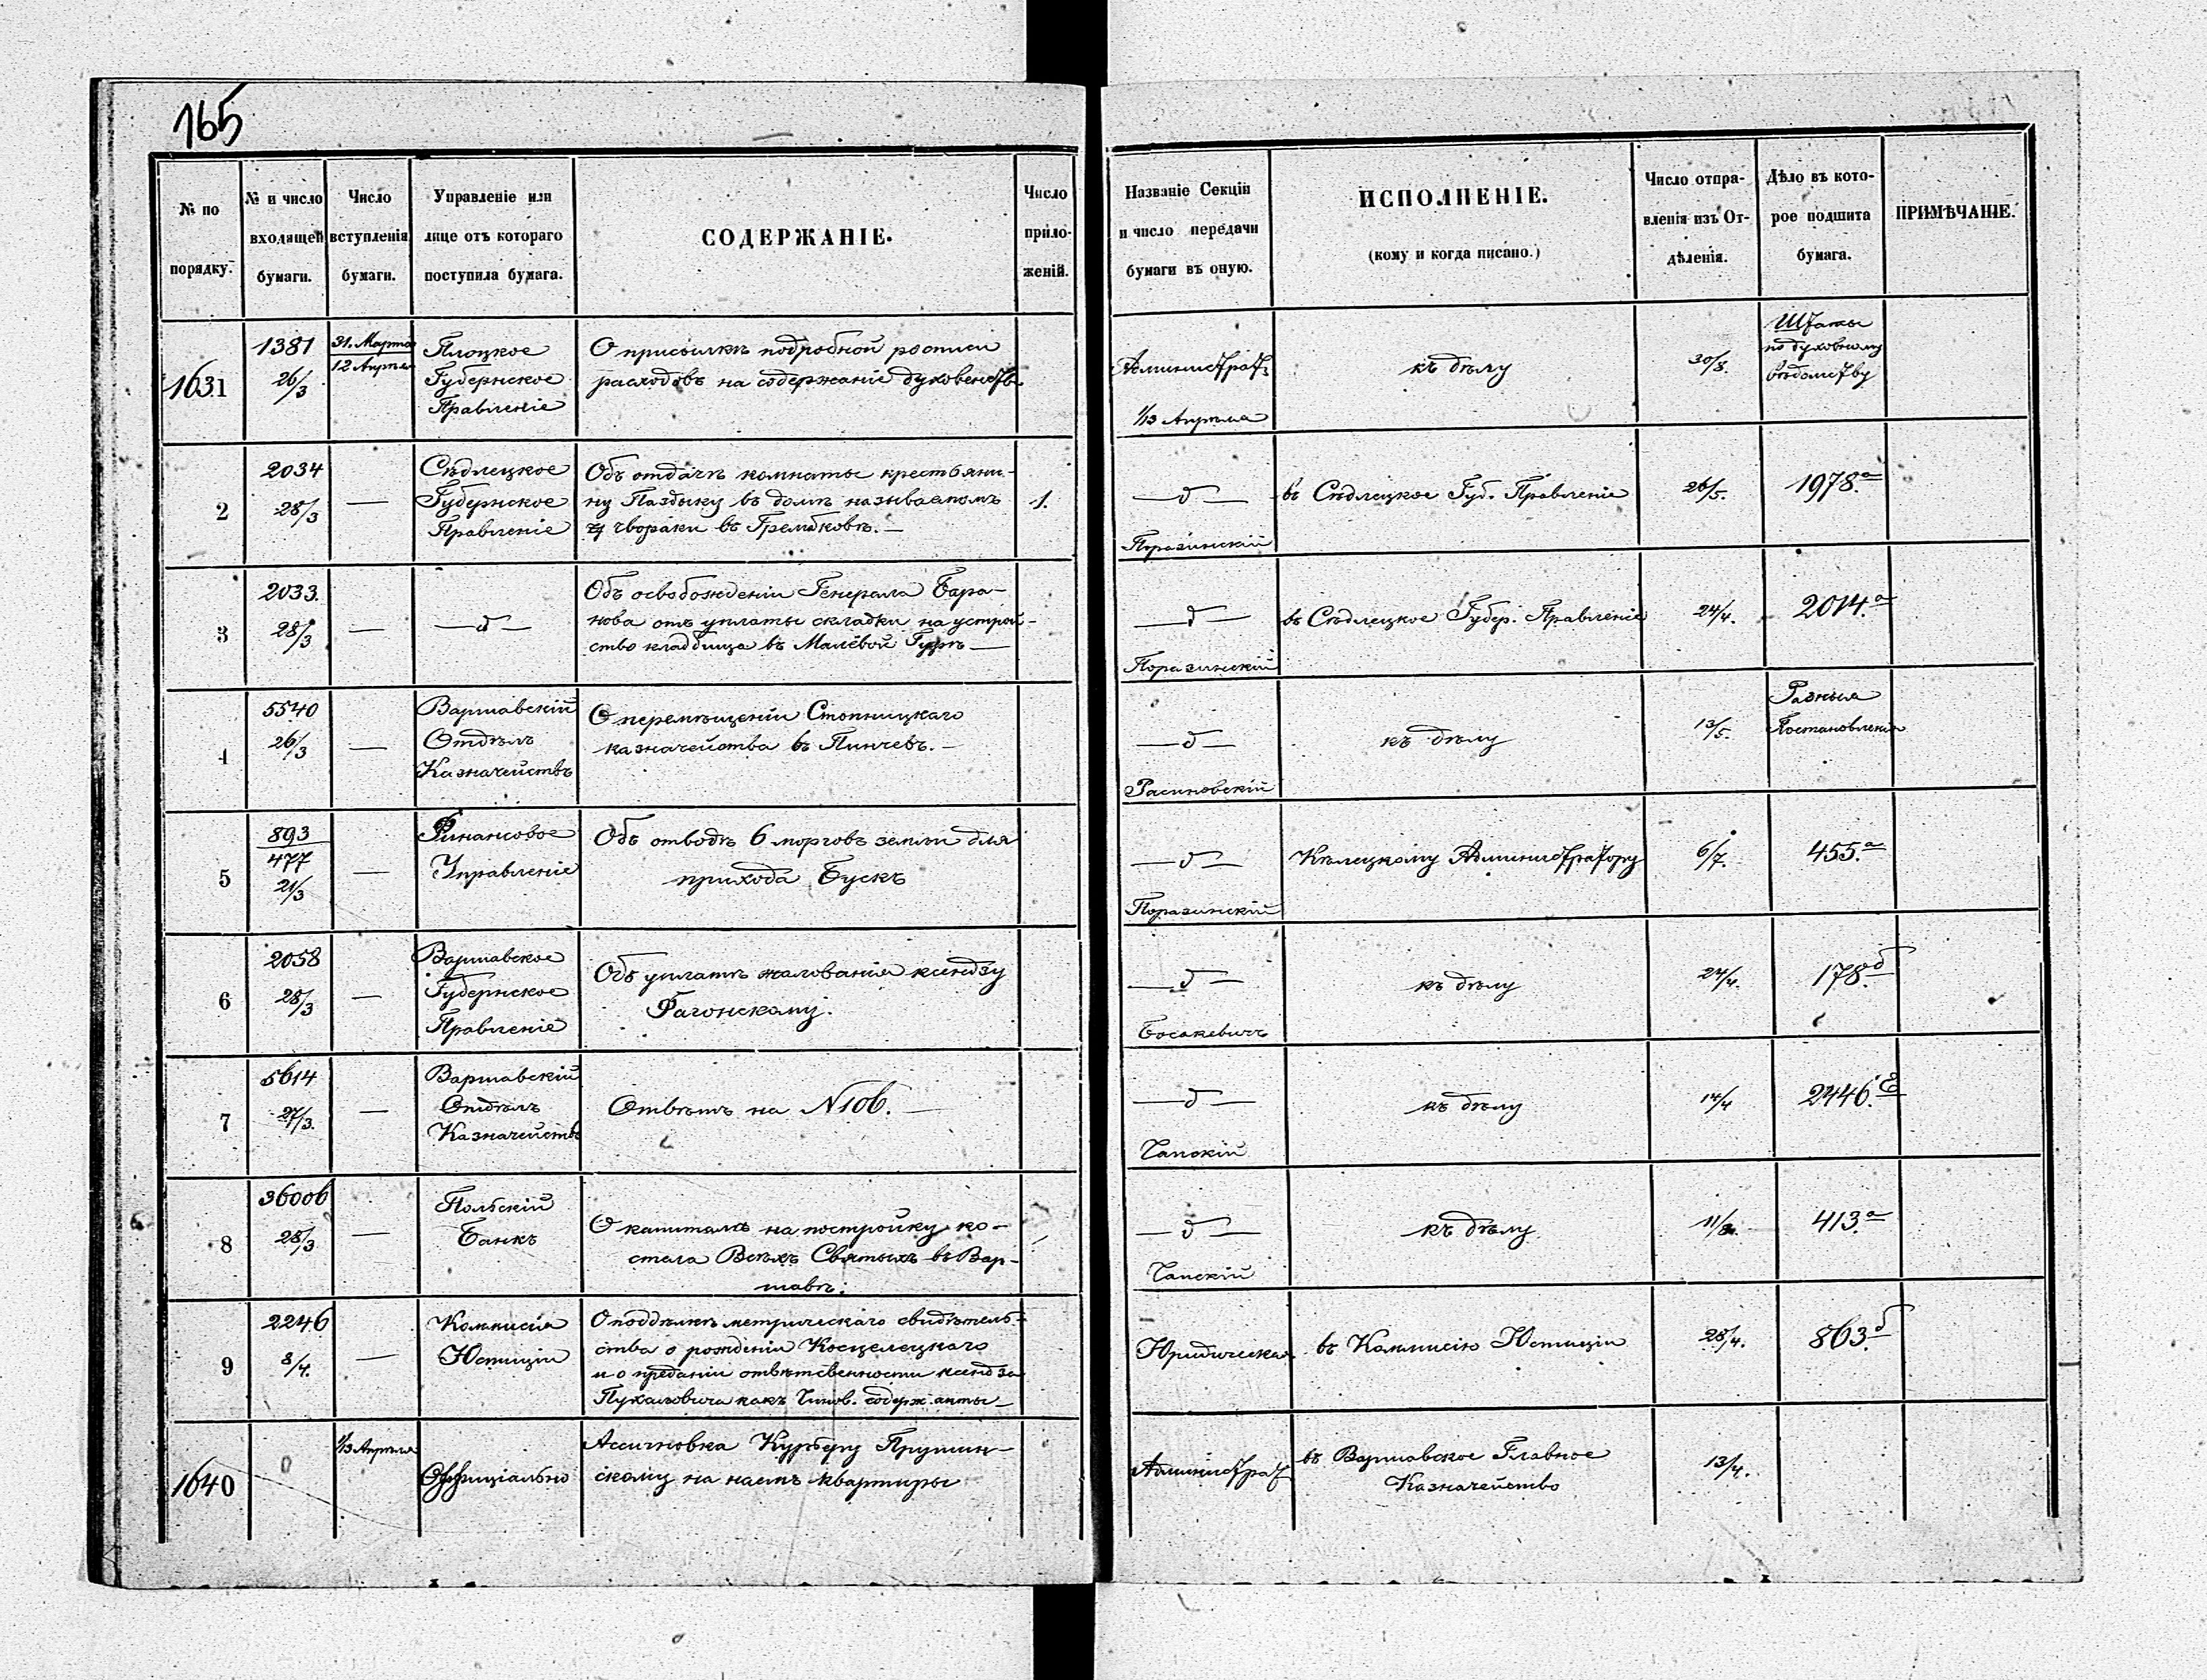 165
№ по
порядку.
№ и число
входящей
бумаги.
Число
вступленія
бумаги.
Управленіе или
лице отъ котораго
поступила бумага.
СОДЕРЖАНІЕ.
Число
прило-
женій.
Названіе Секціи
и число передачи
бумаги въ оную.
ИСПОЛНЕНІЕ.
(кому и когда писано.)
Число отпра-
вленія изъ От-
дѣленія.
Дѣло въ кото-
рое подшита
бумага.
ПРИМѢЧАНІЕ.
1631
1381
26/3
31. Марта
12 Апрѣля
Плоцкое
Губернское
Правленіе
О присылкѣ подробной росписи
расходовъ на содержаніе духовенства
Администрат.
1/13 Апрѣля
къ дѣлу
30/8.
Штаты
по духовному
вѣдомству
2
2034
28/3
—
Сѣдлецкое
Губернское
Правленіе
Объ отдачѣ комнаты крестьяни-
ну Паздыку въ домѣ называемомъ
чвораки въ Грембковѣ. —
1.
— д —
Поразинскій
въ Сѣдлецкое Губ. Правленіе
26/5.
1978.а
3
2033.
28/3
—
— д —
Объ освобожденіи Генерала Бара-
нова отъ уплаты складки на устрой-
ство кладбища въ Малёвой Гурѣ —
— д —
Поразинскій
въ Сѣдлецкое Губер. Правленіе
24/4.
2014.а
4
5540
26/3
—
Варшавскій
Отдѣлъ
Казначействъ
О перемѣщеніи Стопницкаго
казначейства въ Пинчевъ. —
— д —
Расиновскій
къ дѣлу
13/5.
Разныя
Постановленія
5
893
477
21/3
—
Финансовое
Управленіе
Объ отводѣ 6 морговъ земли для
прихода Бускъ
— д —
Поразинскій
Кѣлецкому Администратору
6/7.
455.а
6
2058
28/3
—
Варшавское
Губернское
Правленіе
Объ уплатѣ жалованія ксендзу
Рагонскому.
— д —
Босакевичъ
къ дѣлу
24/4.
178.б
7
5614
27/3.
—
Варшавскій
Отдѣлъ
Казначействъ
Отвѣтъ на N 106. —
— д —
Чапскій
къ дѣлу
14/4
2446.Е
8
36006
28/3
—
Польскій
Банкъ
О капиталѣ на постройку ко-
стела Всѣхъ Святыхъ въ Вар-
шавѣ.
— д —
Чапскій
къ дѣлу
11/8.
413.а
9
2246
8/4.
—
Коммисія
Юстиціи
О поддѣлкѣ метрическаго свидѣтель-
ства о рожденіи Косцелецкаго
и о преданіи отвѣтсвенности ксендза
Пухаловича какъ Чинов. содерж. акты —
Юридическая
въ Коммисію Юстиціи
28/4.
863.б
1640
1/13 Апрѣля
Оффиціально
Ассигновка Курьеру Прушин-
скому на наемъ квартиры
Администрат
въ Варшавское Главное
Казначейство
13/4.